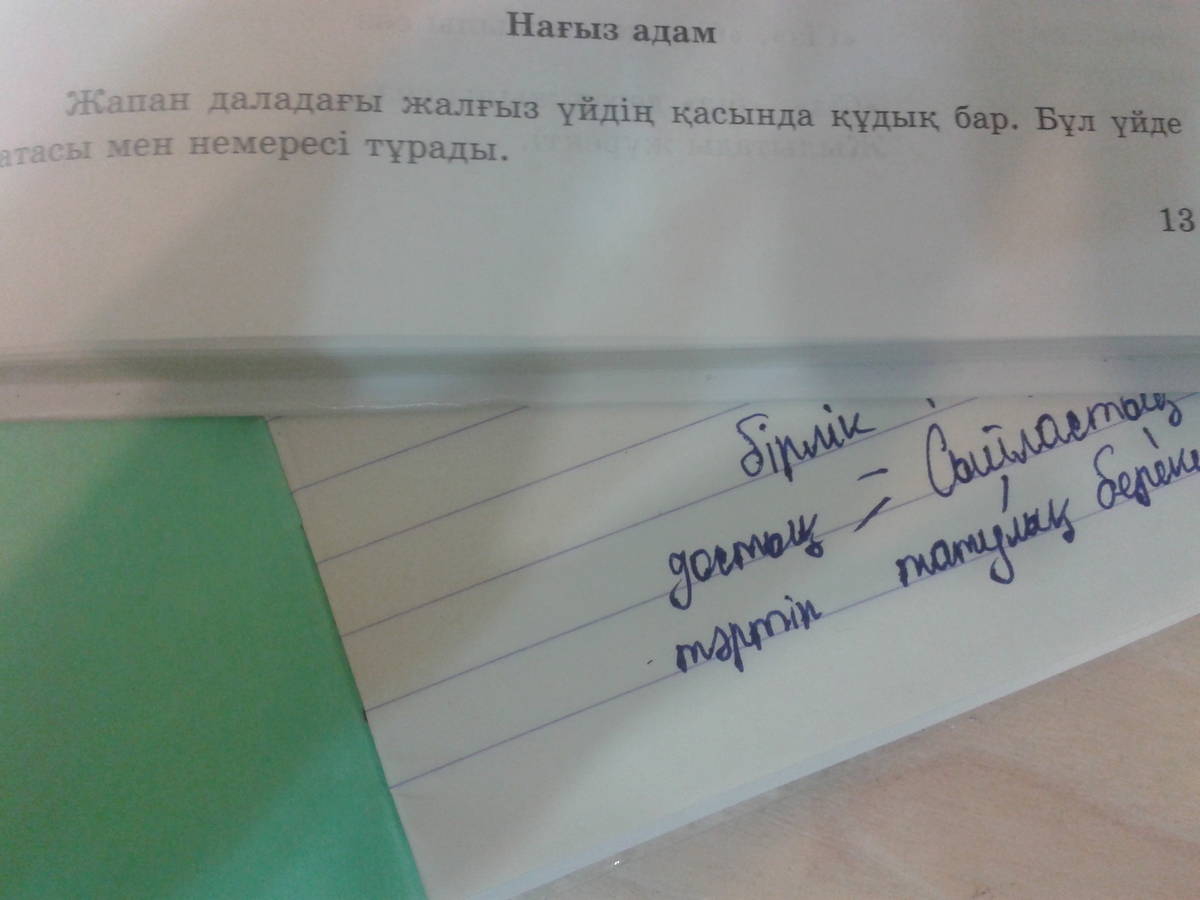 Нағыз адам
Жапан даладағы жалғыз үйдің қасында құдық бар. Бұл үйде
атасы мен немересі тұрады.
13
бірлік
достық = Сыйластық
тәртіп татулық береке